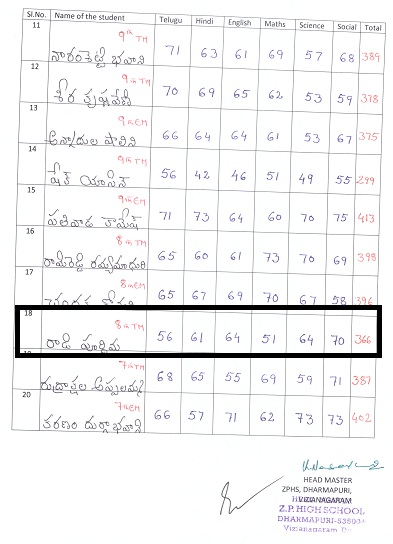 Sl.No. Name of the student Telugu Hindi English Maths Science Social Total
11 9th TM 71 63 61 69 57 68 389
12 9th TM 70 69 65 62 53 59 378
13 9th EM 66 64 64 61 53 67 375
14 9th TM షేక్ యాసిన్ 56 42 46 51 49 55 299
15 9th EM 71 73 64 60 70 75 413
16 8th TM 65 60 61 73 70 69 398
17 8th EM 65 67 69 70 67 58 396
18 8th TM రాడి పూర్ణిమ 56 61 64 51 64 70 366
7th TM 68 65 55 69 59 71 387
20 7th EM కరణం దుర్గా భవాని 66 57 71 62 73 73 402
HEAD MASTER
ZPHS, DHARMAPURI,
VIZIANAGARAM
Z.P. HIGH SCHOOL
DHARMAPURI-535004
Vizianagaram